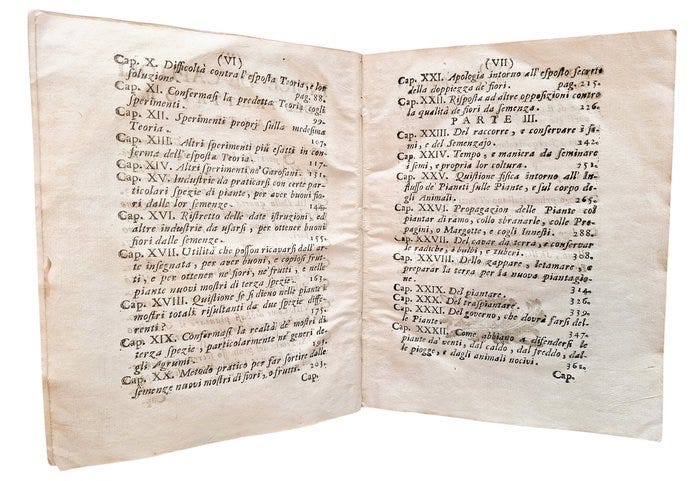 (VI)
Cap. X. Difficoltà contra l'esposta Teoria, e lor
soluzione. pag. 88.
Cap. XI. Confermasi la predetta Teoria cogli
sperimenti. 99.
Cap. XII. Sperimenti propri sulla medesima
Teoria. 107.
Cap. XIII. Altri sperimenti più esatti in con-
ferma dell'esposta Teoria. 117.
Cap. XIV. Altri sperimenti ne' Garofani. 131.
Cap. XV. Industrie da praticarsi con certe par-
ticolari spezie di piante, per aver buoni fio-
ri dalle lor semenze. 144.
Cap. XVI. Ristretto delle date istruzioni, ed
altre industrie da usarsi, per ottener buoni
fiori dalle semenze. 155.
Cap. XVII. Utilità che posson ricavarsi dall'ar-
te insegnata, per aver buoni, e copiosi fru-
ti, e per ottener ne' fiori, ne' frutti, e nelle
piante nuovi mostri di terza spezie. 163.
Cap. XVIII. Quistione se si dieno nelle piante i
mostri totali risultanti da due spezie diffe-
renti? 175.
Cap. XIX. Confermasi la realtà de' mostri di
terza spezie, particolarmente ne' generi de-
gli Agrumi. 191.
Cap. XX. Metodo pratico per far sortire dalle
semenze nuovi mostri di fiori, o frutti. 203.
Cap.
(VII)
Cap. XXI. Apologia intorno all'esposto secreto
della doppiezza de' fiori. pag. 215.
Cap. XXII. Risposta ad altre opposizioni contro
la qualità de fiori da semenza. 226.
PARTE III.
Cap. XXIII. Del raccorre, e conservare i fa-
mi, e del Semenzajo. 242.
Cap. XXIV. Tempo, e maniera da seminare
i semi, e propria lor coltura. 252.
Cap. XXV. Quistione fisica intorno all' In-
flusso de' Pianeti sulle Piante, e sul corpo de-
gli Animali. 265.
Cap. XXVI. Propagazion delle Piante col
piantar di ramo, collo sbranarle, colle Pro-
pagini, o Margotte, e cogli Innesti. 288.
Cap. XXVII. Del cavar da terra, e conservare
le radiche, i bulbi, e tuberi. 308.
Cap. XXVIII. Dello zappare, letamare, e
preparar la terra per la nuova piantagio-
ne. 314.
Cap. XXIX. Del piantare. 326.
Cap. XXX. Del traspiantare. 339.
Cap. XXXI. Del governo, che dovrà farsi del-
le Piante. 347.
Cap. XXXII. Come abbiano a difendersi le
piante da' venti, dal caldo, dal freddo, dal-
le piogge, e dagli animali nocivi. 362.
Cap.